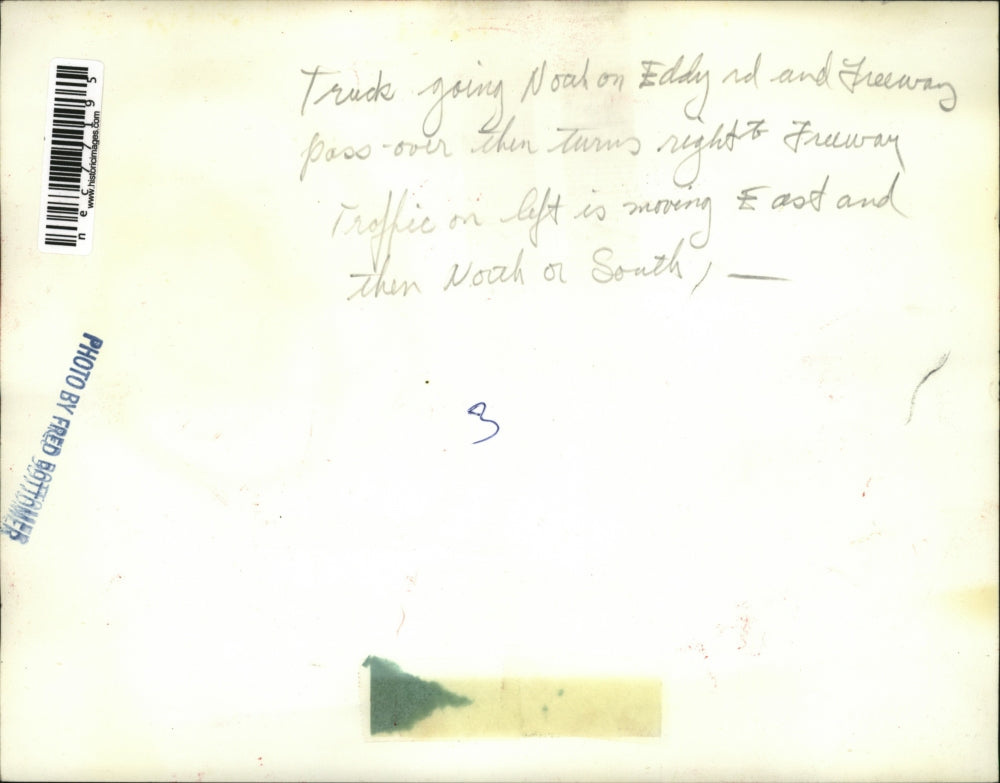 Truck going North on Eddy rd and Freeway
pass-over then turns right to Freeway
Traffic on left is moving East and
then North or South, —
3
PHOTO BY FRED BOTTOMER
www.historicimages.com
nec77195